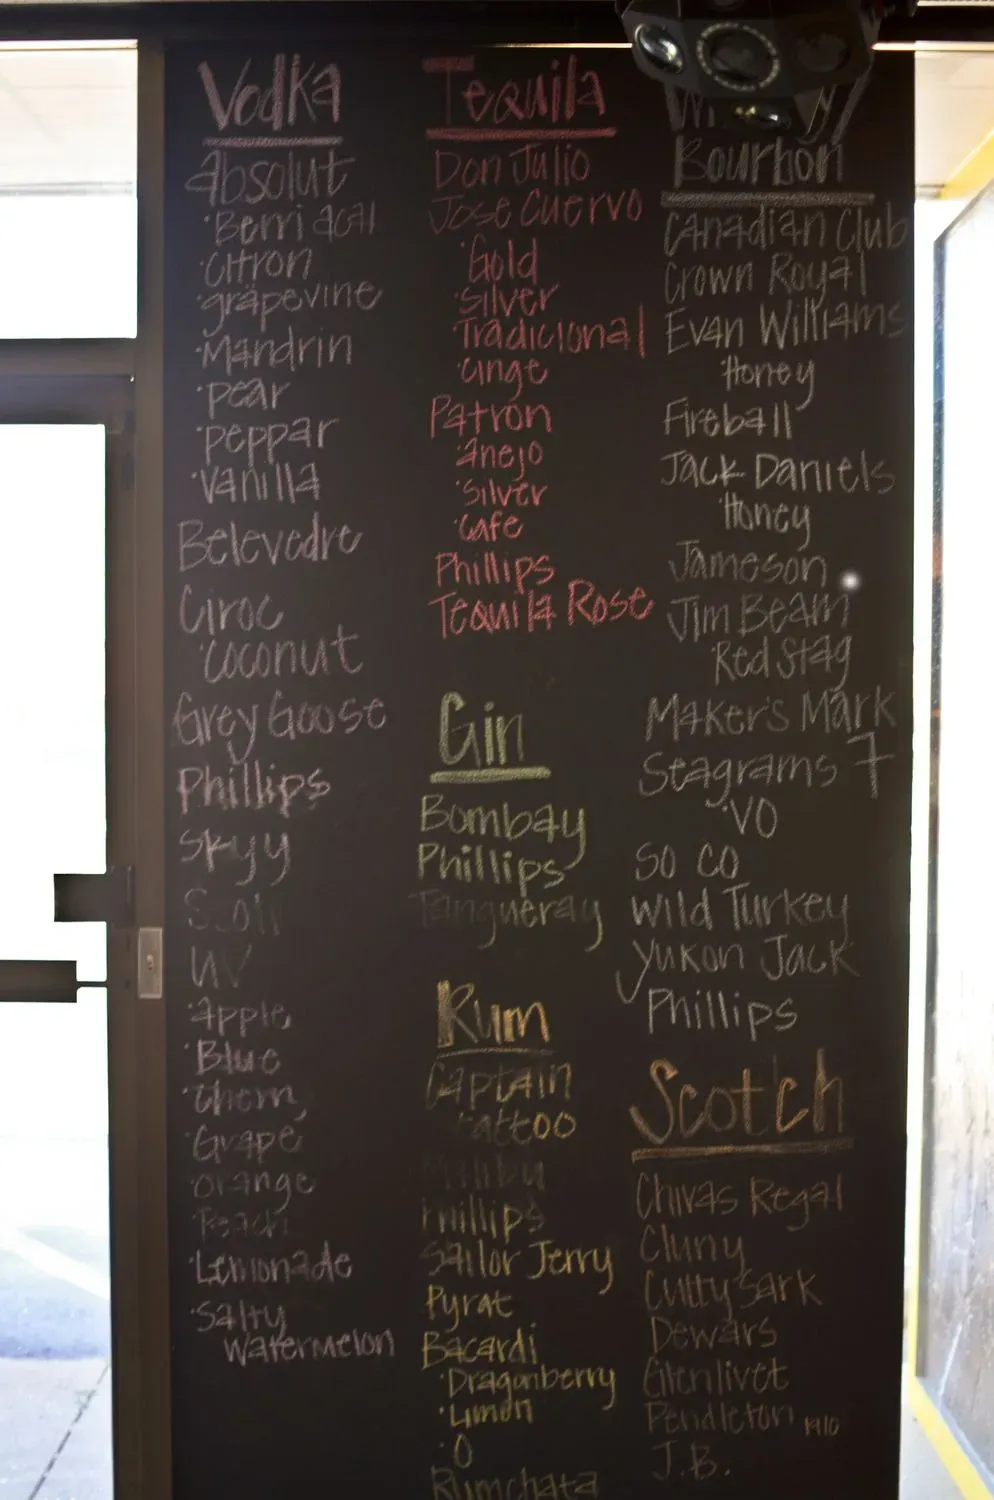 Vodka
Absolut
·Berri acai
·Citron
·grapevine
·Mandrin
·pear
·peppar
·Vanilla
Belevedre
Ciroc
·coconut
Grey Goose
Phillips
Skyy
Stoli
UV
·apple
·Blue
·cherry
·Grape
·orange
·Peach
·Lemonade
·Salty
Watermelon
Tequila
Don Julio
Jose Cuervo
·Gold
·Silver
·Tradicional
·Cinge
Patron
·anejo
·Silver
·Cafe
Phillips
Tequila Rose
Gin
Bombay
Phillips
Tangueray
Rum
Captain
·tattoo
Malibu
Phillips
Sailor Jerry
Pyrat
Bacardi
·Dragonberry
·Limon
·O
Rumchata
Bourbon
Canadian Club
Crown Royal
Evan Williams
·Honey
Fireball
Jack Daniels
·Honey
Jameson
Jim Beam
·Red Stag
Maker's Mark
Seagrams 7
·VO
So Co
Wild Turkey
Yukon Jack
Phillips
Scotch
Chivas Regal
Cluny
Cutty Sark
Dewars
Glenlivet
Pendleton 1910
J.B.